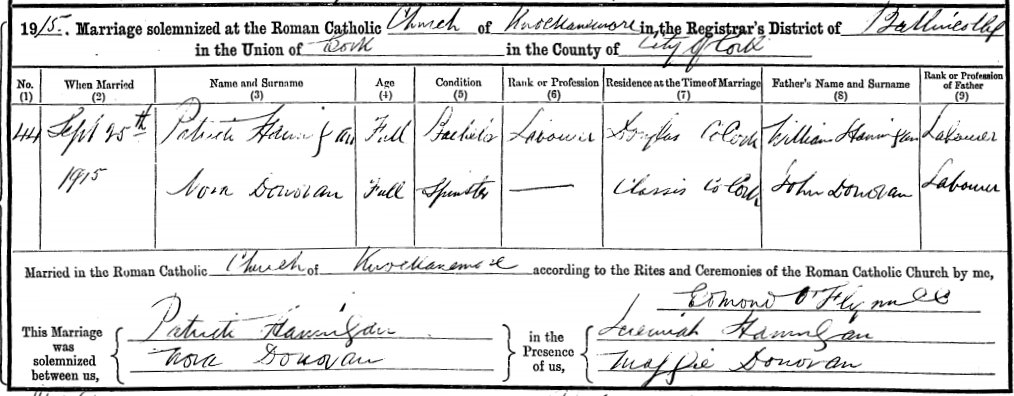 1915. Marriage solemnized at the Roman Catholic Church of Knockanemore in the Registrar's District of Ballincollig
in the Union of Cork in the County of City of Cork
No. (1) When Married (2) Name and Surname (3) Age (4) Condition (5) Rank or Profession (6) Residence at the Time of Marriage (7) Father's Name and Surname (8) Rank or Profession of Father (9)
44 Sept 25th Patrick Hannigan Full Bachelor Labourer Douglas Co Cork William Hannigan Labourer
1915 Nora Donovan Full Spinster — Classis Co Cork John Donovan Labourer
Married in the Roman Catholic Church of Knockanemore according to the Rites and Ceremonies of the Roman Catholic Church by me,
Edmond O'Flynn CC
This Marriage was solemnized between us,
Patrick Hannigan
Nora Donovan
in the Presence of us,
Jeremiah Hannigan
Maggie Donovan